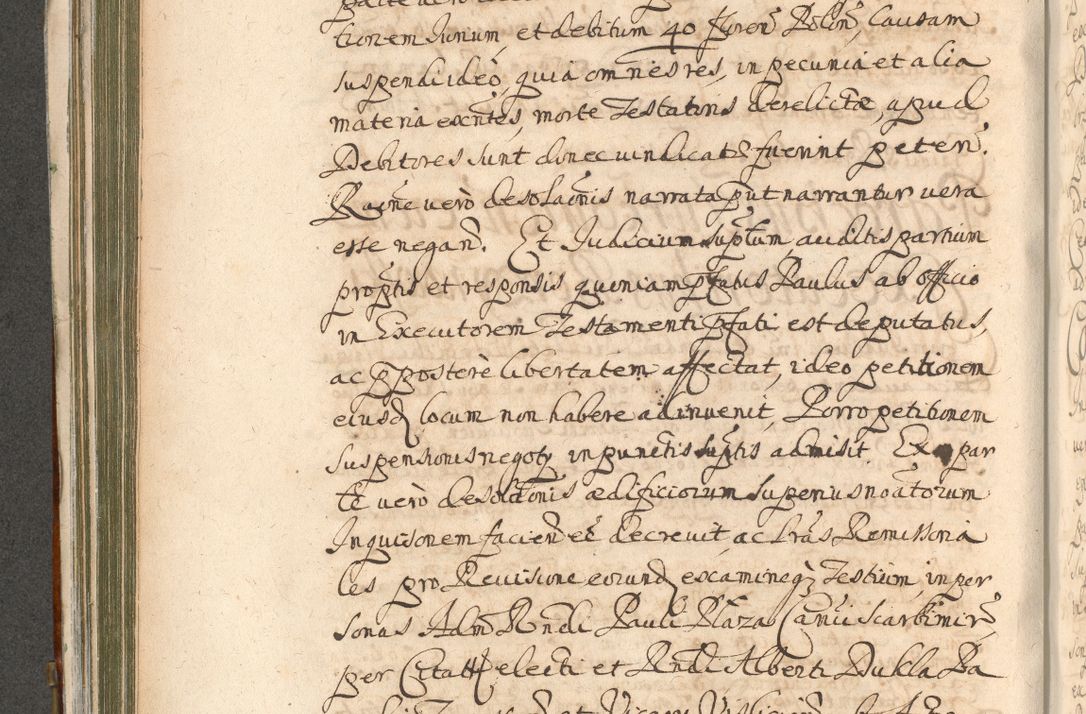 tionem Junium, et debitum 40 floren̄ Polon̄, Causam
suspendi ideò, quia omnes res, in pecunia et alia
materia exn̄tes, morte Testatoris derelictæ, apud
Debitores sunt donec vindicatæ fuerint peten̄.
Raōne verò desolaōnis narrata put narrantur vera
esse negan̄. Et Judicium supr̄tum auditis partium
proptis et responsis quoniam p̄fatus Paulus ab officio
in Executorem Testamenti p̄fati est deputatus,
ac p̄posterè libertatem affectat, ideo petitionem
eiusd locum non habere adinvenit, Porro petitionem
suspensionis negoty in punctis sup̄tis admisit. Ex par
te verò desolōnis ædificiorum superius noātorum
Inquisōnem facien̄ eē decrevit, ac Lrās Remissoria
les pro Revisione eorund, examineq Testium, in per
sonas Adm̄ Rndi Pauli Plaza Canci Scarbimir̄
per Citatt electi et Rndi Alberti Dukla Pa